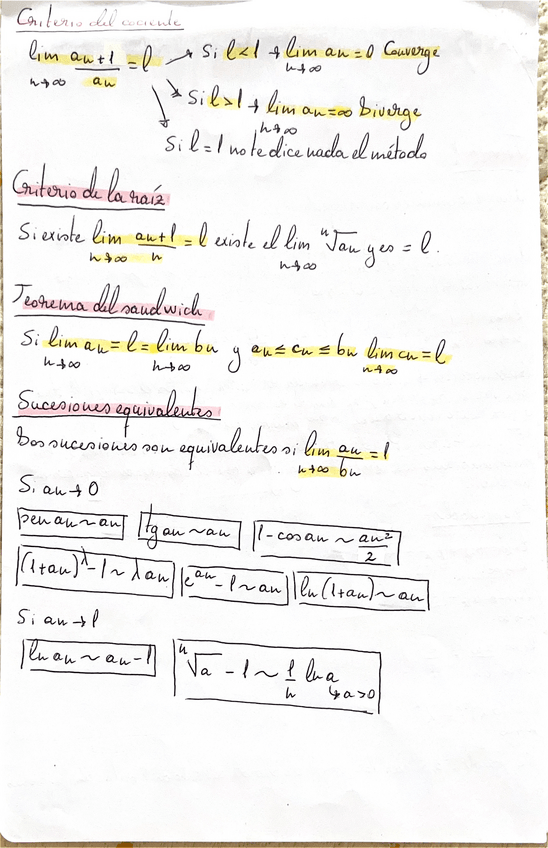 Criterio del cociente
lim n→∞ an+1/an = l → Si l<1 → lim n→∞ an = 0 Converge
Si l>1 → lim n→∞ an = ∞ Diverge
Si l = 1 no te dice nada el método
Criterio de la raíz
Si existe lim n→∞ an+1/n = l existe el lim n→∞ ⁿ√an y es = l.
Teorema del sandwich
Si lim n→∞ an = l = lim n→∞ bn y an ≤ cn ≤ bn lim n→∞ cn = l
Sucesiones equivalentes
Dos sucesiones son equivalentes si lim n→∞ an/bn = 1
Si an → 0
sen an ~ an tg an ~ an 1 - cos an ~ an²/2
(1+an)^λ - 1 ~ λ an e^an - 1 ~ an ln(1+an) ~ an
Si an → 1
ln an ~ an - 1 ⁿ√a - 1 ~ 1/n ln a ↳ a>0